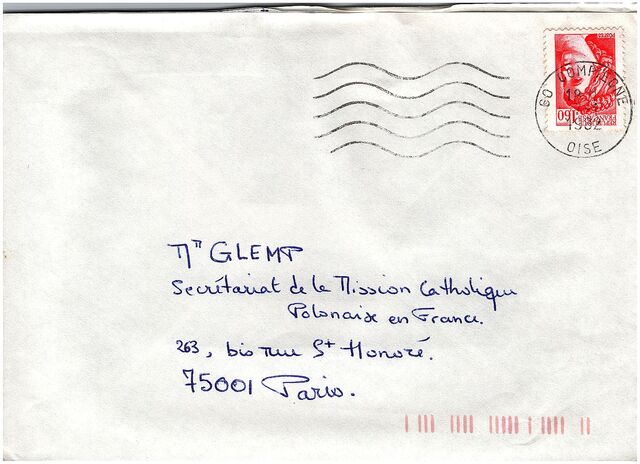 60 COMPIEGNE
1982
OISE
1,60
Mgr GLEMP
Secrétariat de la Mission Catholique
Polonaise en France.
263, bis rue St Honoré.
75001 Paris.